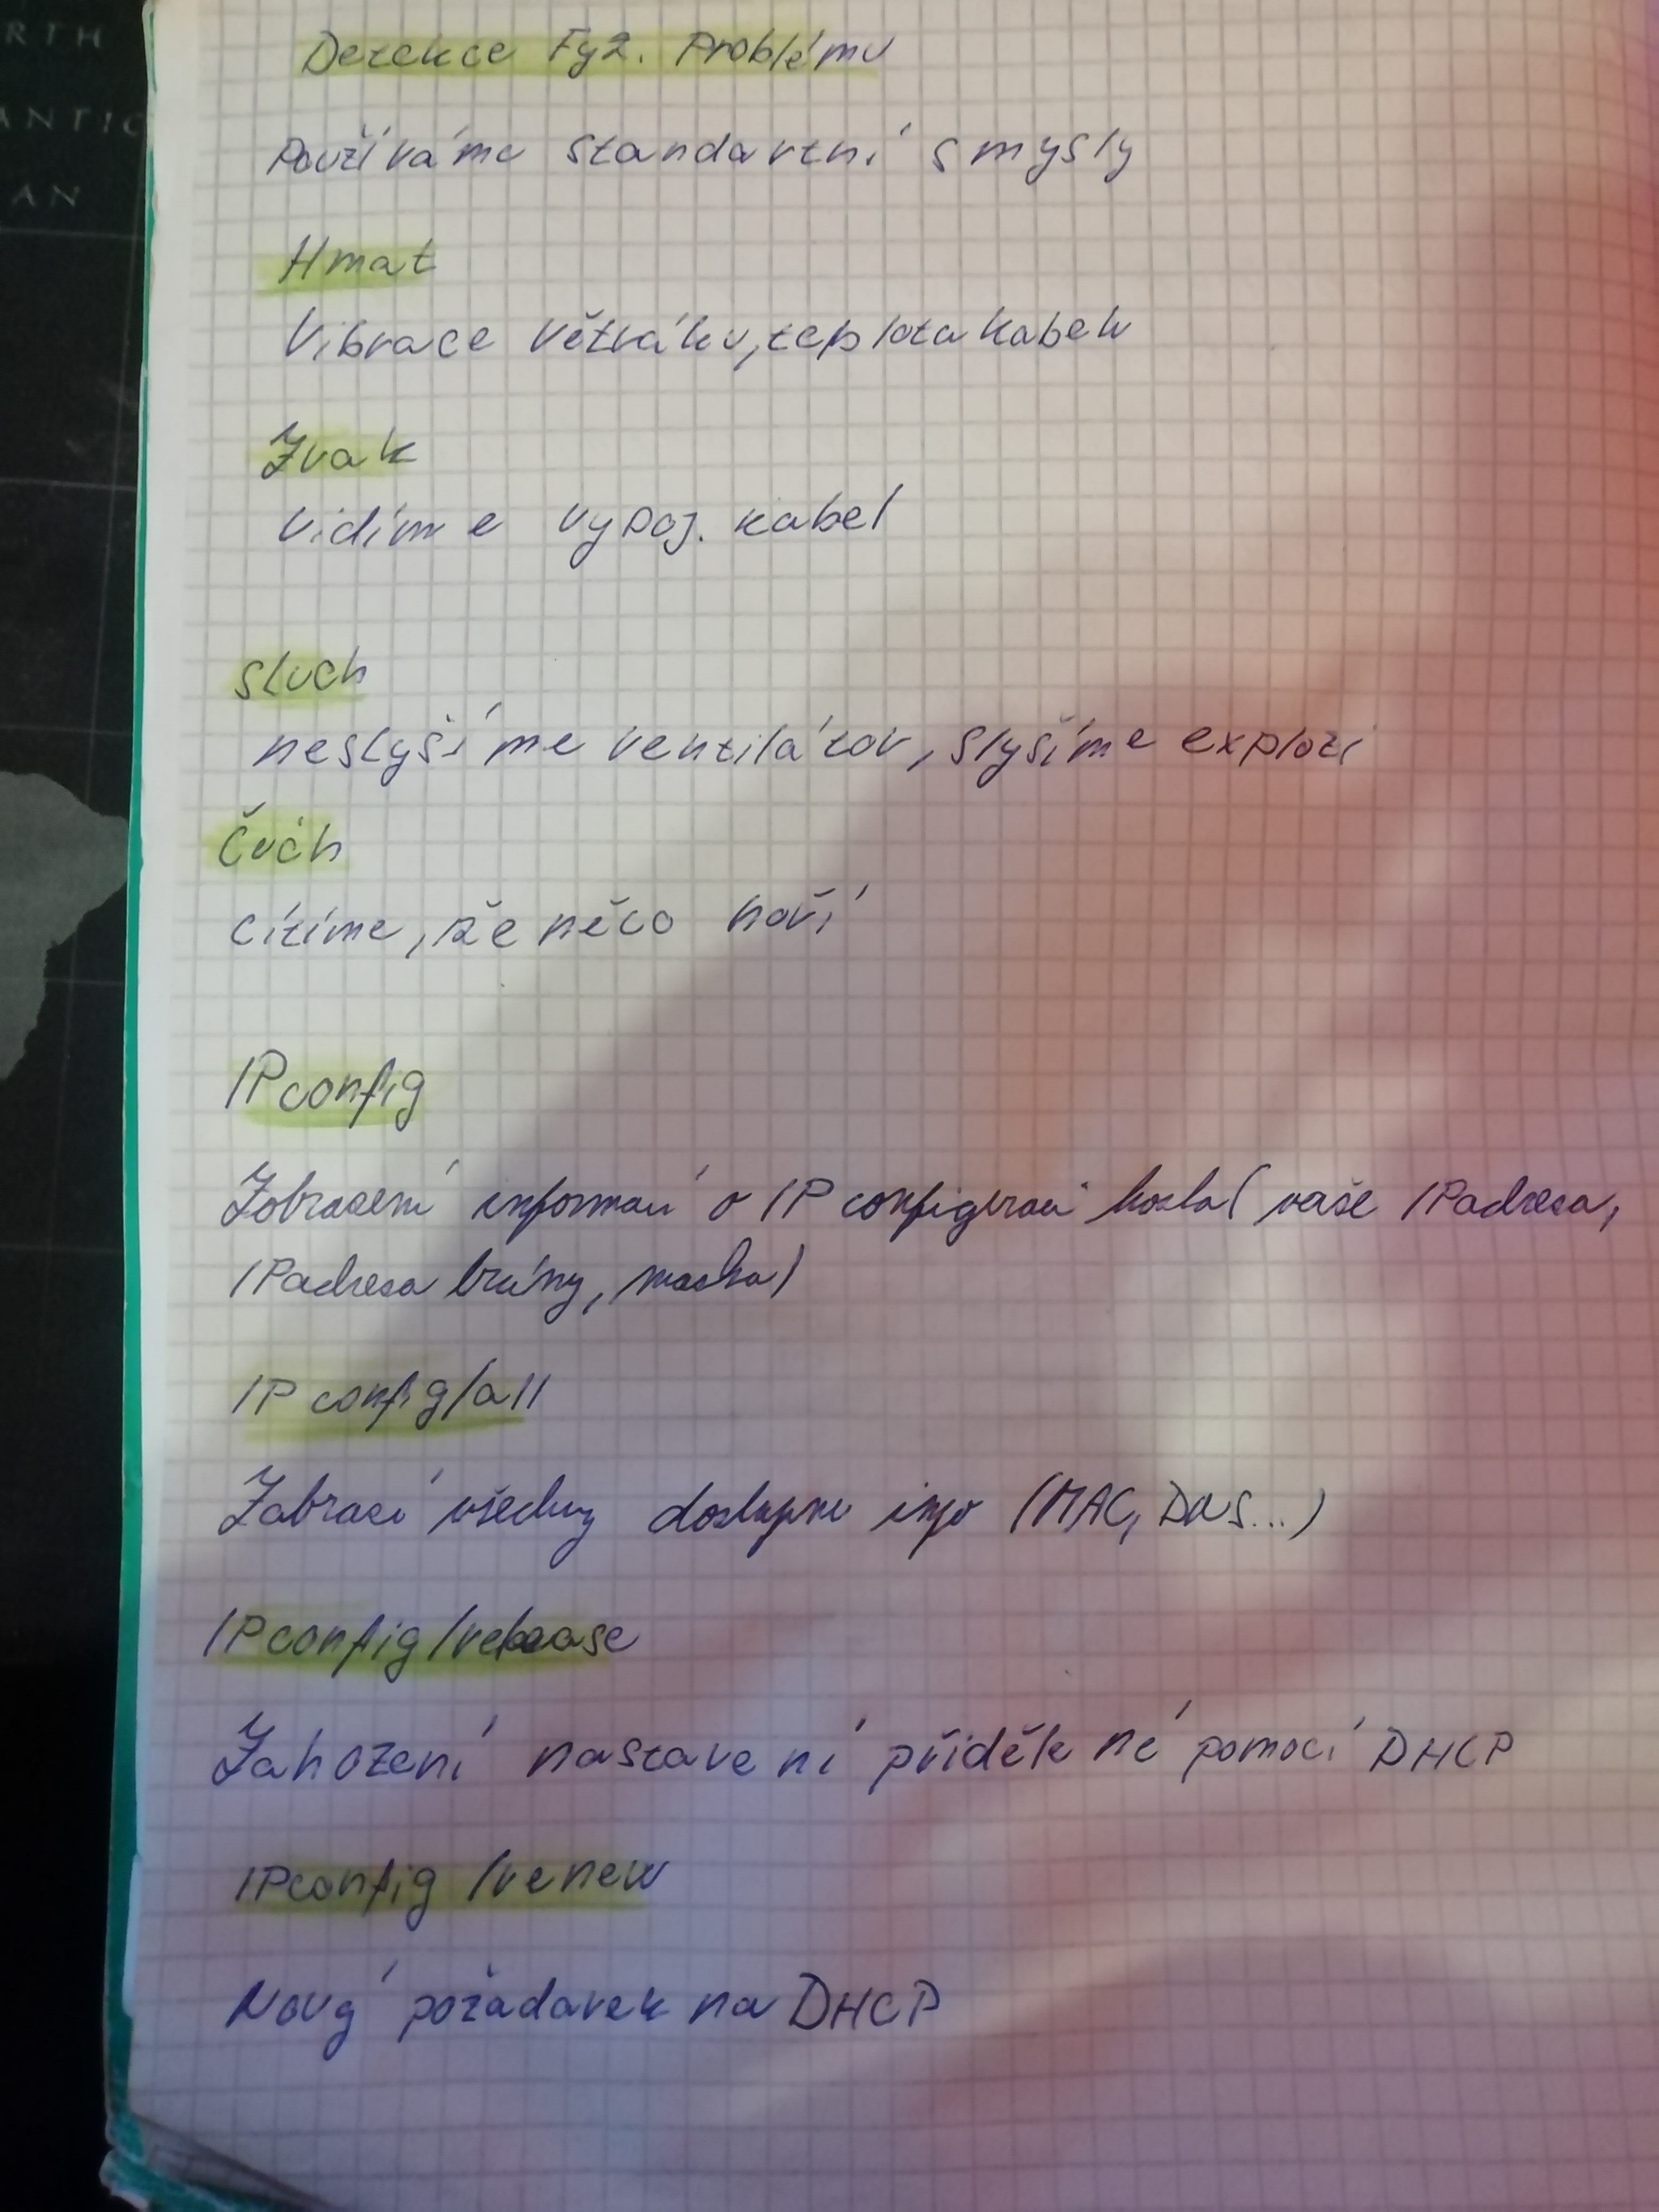 RTH
ANTIC
AN
Detekce Fyz. Problému
Používáme standartní smysly
Hmat
Vibrace větráku, teplota kabelu
Zrak
Vidíme vypoj. kabel
sluch
neslyšíme ventilátor, slyšíme explozi
Čuch
cítíme, že něco hoří
IPconfig
Zobrazení informací o IP configuraci hosta (vaše IP adresa,
IP adresa brány, maska)
IP config/all
Zobrazí všechny dostupné info (MAC, DNS...)
IPconfig /release
Zahození nastavení přidělené pomocí DHCP
IPconfig /renew
Nový požadavek na DHCP